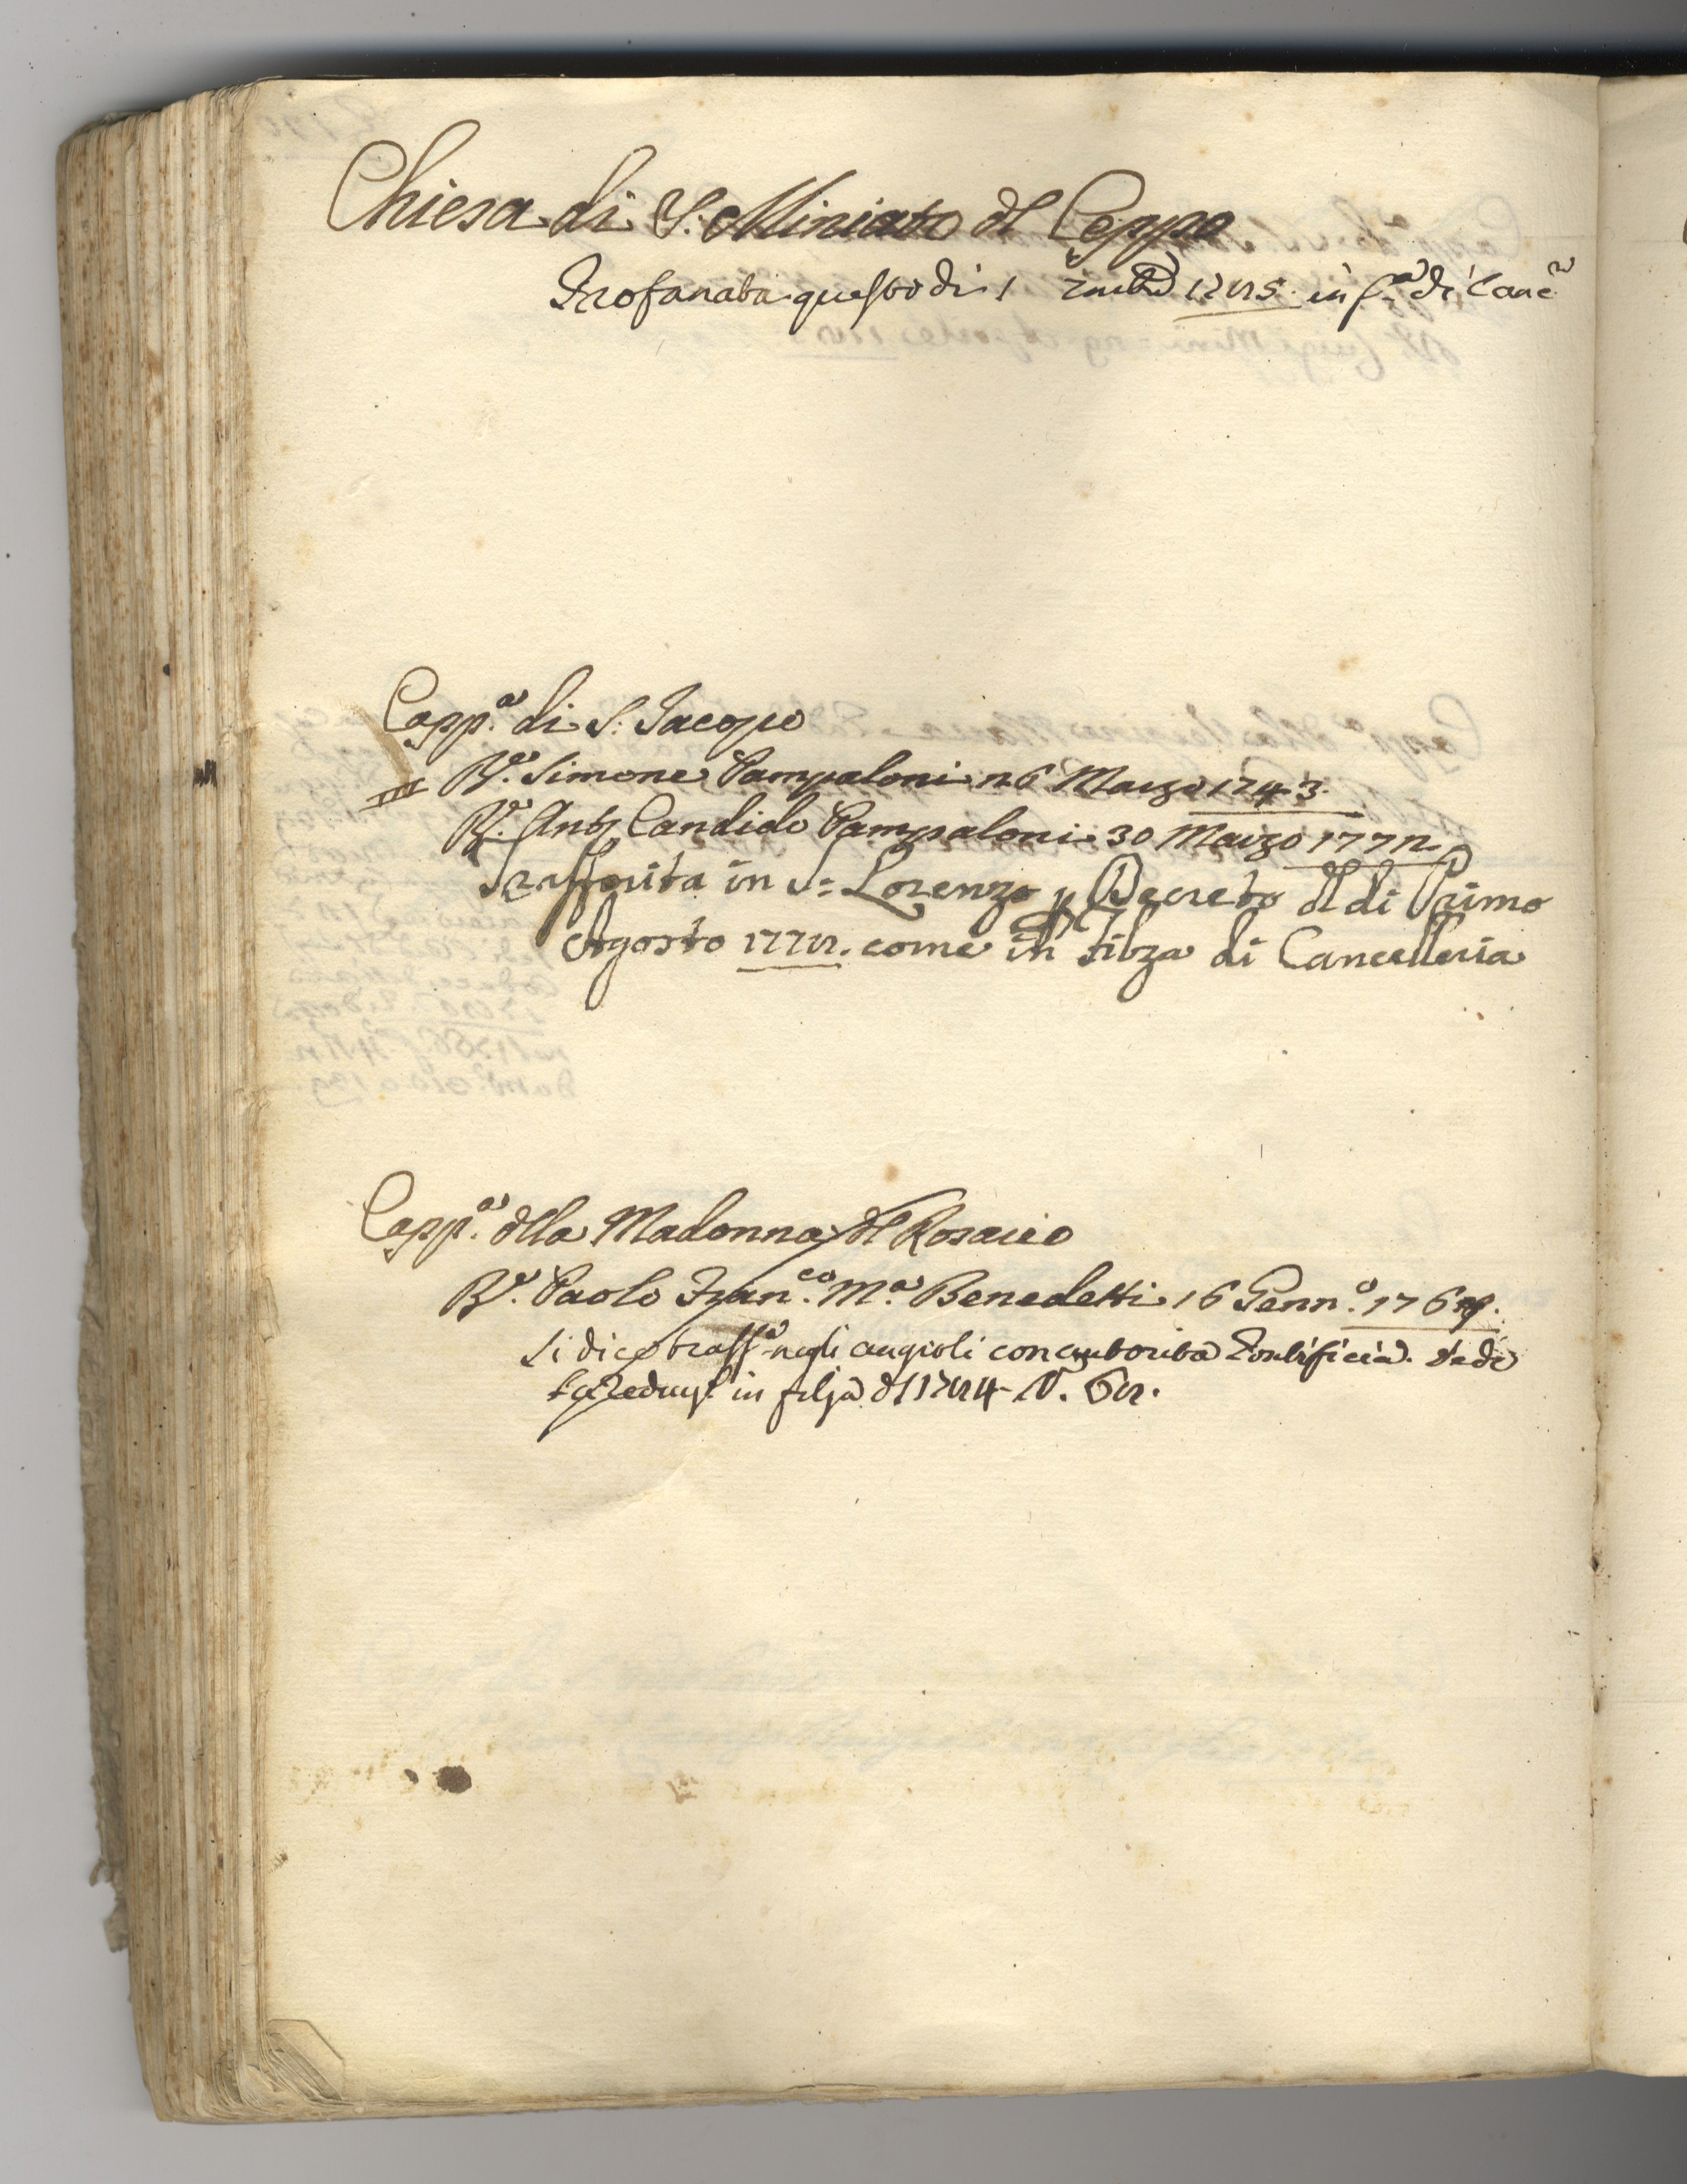 Chiesa di S. Miniato dl Ceppo
Profanata questo di 1 1785. in f.a di Canc.
Capp.a di S. Jacopo
R.e Simone Pampaloni 26 Marzo 1743.
R.e Anto Candido Pampaloni 30 Marzo 1772
Trasferita in S: Lorenzo p Decreto dl di Primo
Agosto 1778. come in filza di Cancelleria
Capp.a dlla Madonna dl Rosario
R.e Paolo Fran.co M.a Benedetti 16 Genn.o
Si dice trasf.a negli angioli con autorita Pontificia. Vede
in filza dl 1784 N. 68.